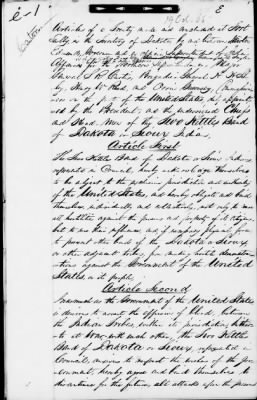 19 Oct. 65
Articles of a Treaty made and concluded at Fort
Sully in the Territory of Dakota by and between Newton
Edmunds, Governor and ex officio Superintendent of Indian
Affairs
Samuel R. Curtis,
by, Henry W. Reed and Orrin Guernsey, Commission
ers on the part of the United States, duly appoint
ed by the President, and the undersigned Chiefs
and Head Men of the Two Kettles Band
of Dakota or Sioux Indians.
Article First
The Two Kettles Band of Dakota or Sioux Indians
represented in Council, hereby acknowledge themselves
to be subject to the exclusive jurisdiction and authority
of the United States, and hereby obligate and bind
themselves individually, and collectively, not only to cease
all hostilities against the persons and property of its citizens,
but to use their influence, and if necessary physical force
to prevent other bands of the Dakota or Sioux
or other adjacent tribes, from making hostile demonstra-
tions against the Government of the United
States, or its people.
Article Second
Inasmuch as the Government of the United States
is desirous to arrest the effusion of blood, between
the Indian tribes, within its jurisdiction, hither-
to at war with each other, the Two Kettles
Band of Dakota or Sioux, represented in
Council, anxious to respect the wishes of the Gov-
ernment, hereby agree and bind themselves to
discontinue for the future, all attacks upon the persons